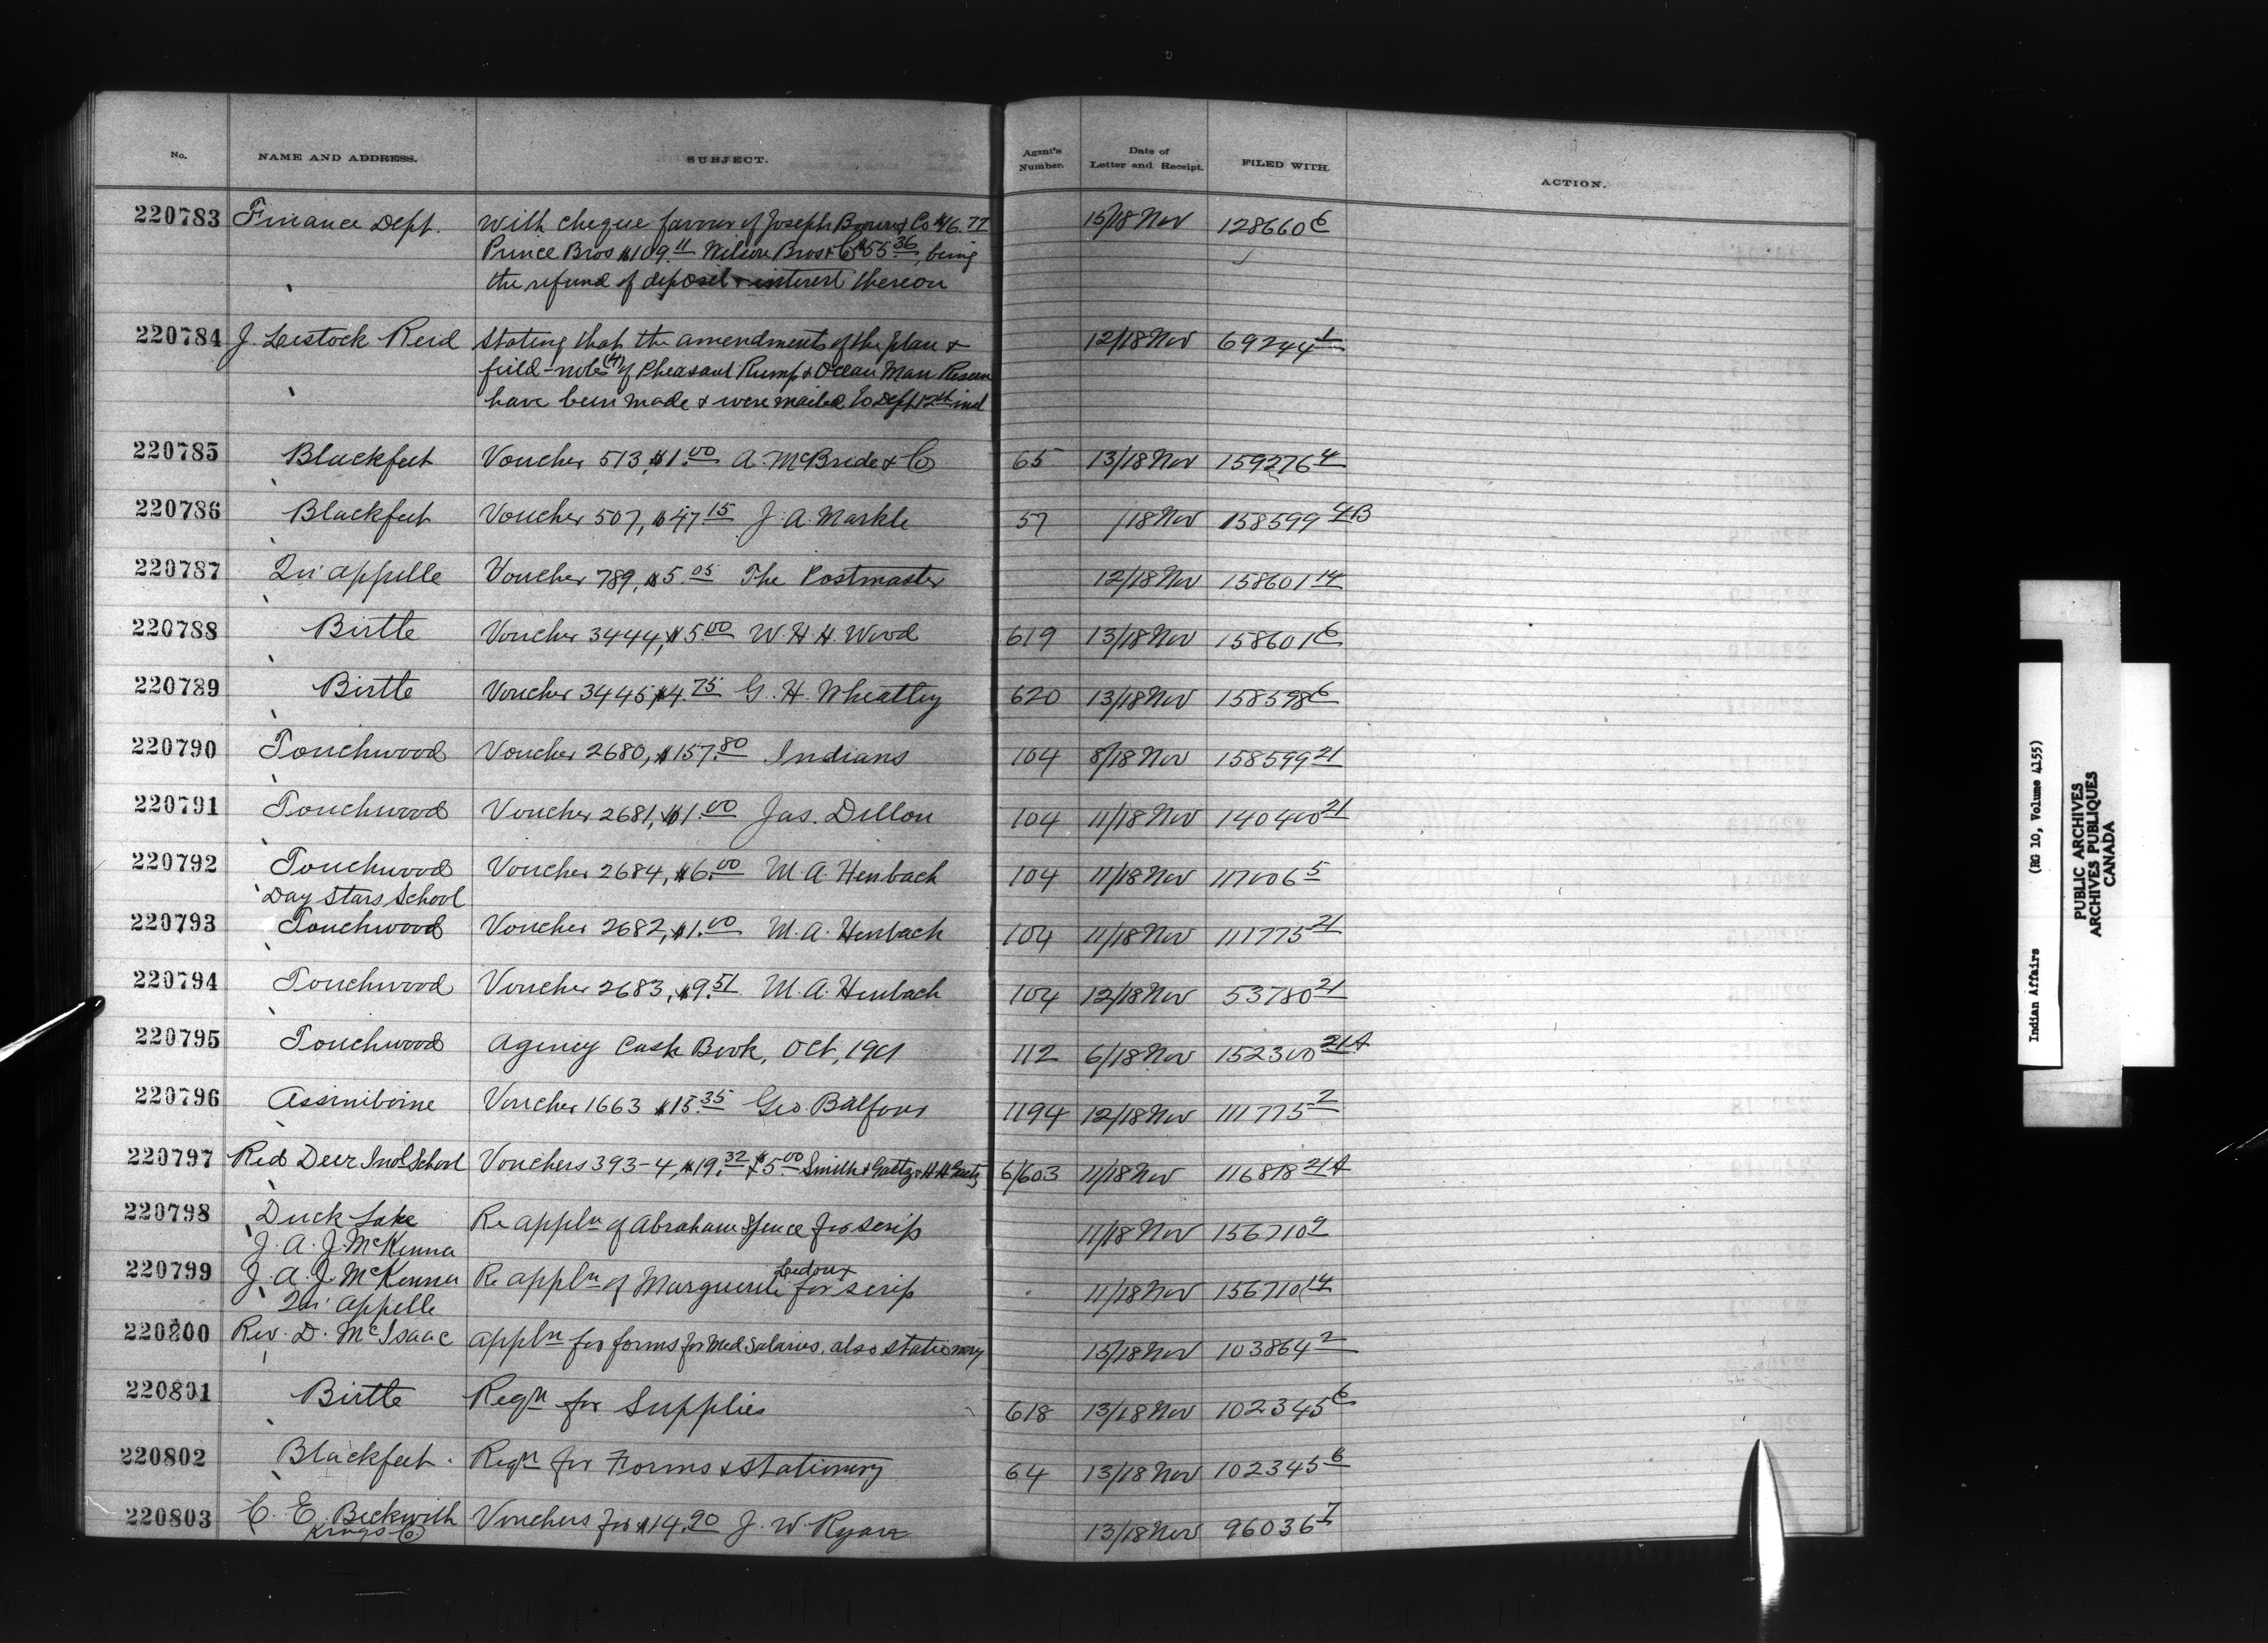 No. NAME AND ADDRESS. SUBJECT. Agent's Number. Date of Letter and Receipt. FILED WITH. ACTION.
220783 Finance Dept. With cheque favour of Joseph Brown & Co $46.77 15/18 Nov 128660 6
Prince Bros $109.11 Wilson Bros & Co $55.36, being
the refund of deposit & interest thereon
220784 J. Lestock Reid Stating that the amendments of the plan & 12/18 Nov 69244 1
field-notes (4) of Pheasant Rump & Ocean Man Reserve
have been made & were mailed to Dept 12th inst
220785 Blackfeet Voucher 513, $1.00 A. McBride & Co 65 13/18 Nov 159276 4
220786 Blackfeet Voucher 507, $47.15 J. A. Markle 57 /18 Nov 158599 4B
220787 Qu'appelle Voucher 789, $5.05 The Postmaster 12/18 Nov 158601 14
220788 Birtle Voucher 3444, $5.00 W. H. H. Wood 619 13/18 Nov 158601 6
220789 Birtle Voucher 3445, $4.75 G. H. Wheatley 620 13/18 Nov 158598 6
220790 Touchwood Voucher 2680, $157.80 Indians 104 8/18 Nov 158599 21
220791 Touchwood Voucher 2681, $1.00 Jas. Dillon 104 11/18 Nov 140400 21
220792 Touchwood Voucher 2684, $6.00 M. A. Henbach 104 11/18 Nov 117006 5
Day Stars School
220793 Touchwood Voucher 2682, $1.00 M. A. Henbach 104 11/18 Nov 111775 21
220794 Touchwood Voucher 2683, $9.51 M. A. Henbach 104 12/18 Nov 53780 21
220795 Touchwood Agency Cash Book, Oct, 1901 112 6/18 Nov 152300 21A
220796 Assiniboine Voucher 1663 $15.35 Geo. Balfour 1194 12/18 Nov 111775 2
220797 Red Deer Indl School Vouchers 393-4, $19.32 & $5.00 Smith & Gaetz & H. H. Gaetz 6/603 11/18 Nov 116818 21A
220798 Duck Lake Re appln of Abraham Spence for scrip 11/18 Nov 156710 9
J. A. J. McKenna
220799 J. A. J. McKenna Re appln of Marguerite Ledoux for scrip 11/18 Nov 156710 14
Qu'Appelle
220800 Rev. D. McIsaac appln for forms for Med Salaries, also stationery 15/18 Nov 103864 2
220801 Birtle Reqn for Supplies 618 13/18 Nov 102345 6
220802 Blackfeet. Reqn for Forms & Stationery 64 13/18 Nov 102345 6
220803 C. E. Beckwith Vouchers for $14.90 J. W. Ryan 13/18 Nov 96036 7
Kings Co
Indian Affairs (RG 10, Volume 4155)
PUBLIC ARCHIVES
ARCHIVES PUBLIQUES
CANADA